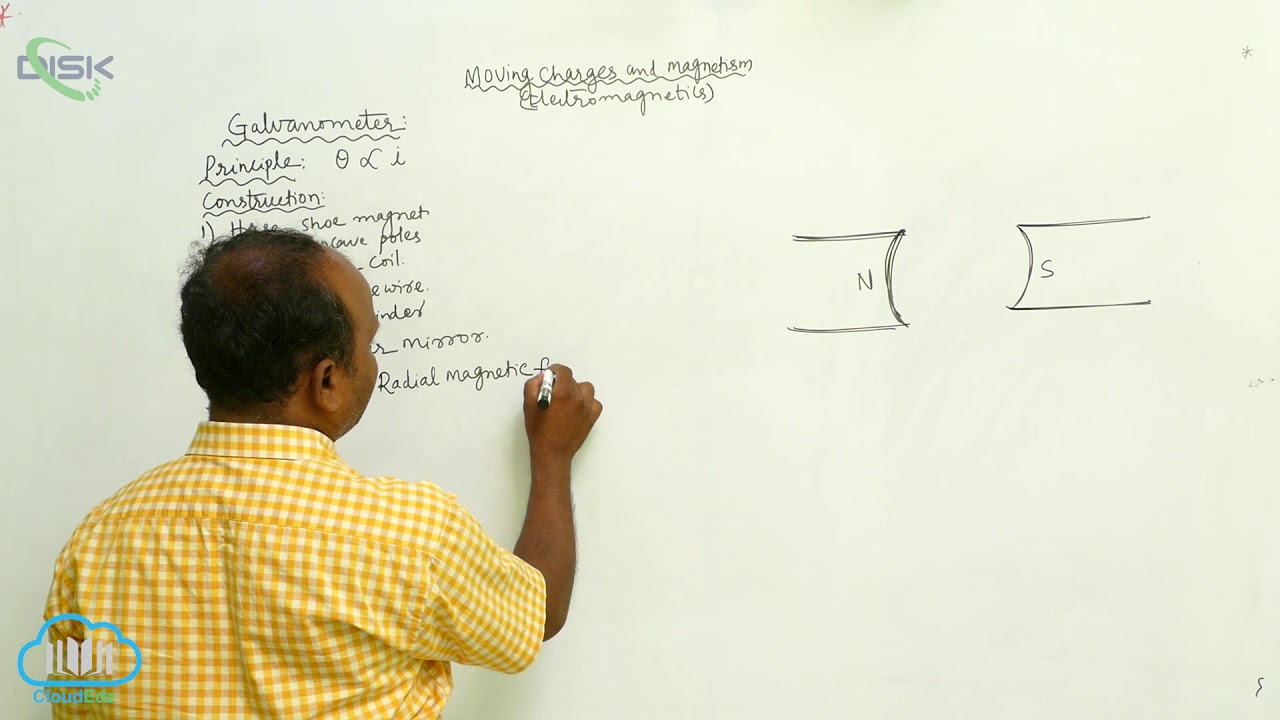 DISK
Moving charges and magnetism
(Electromagnetics)
Galvanometer:
Principle: θ ∝ i
Construction:
1) Horse shoe magnet
poles
coil.
wire.
mirror.
Radial magnetic f
N
S
CloudEdz